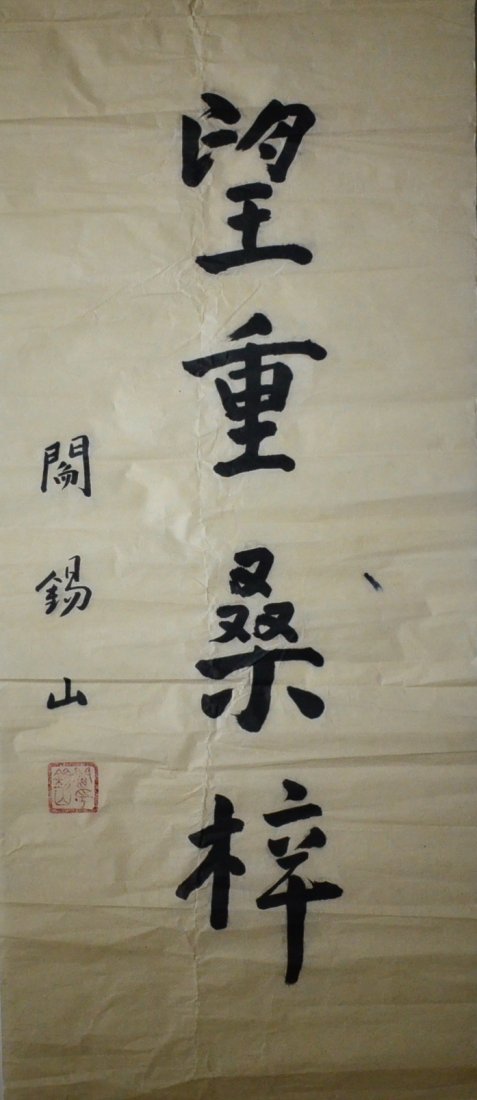 望重桑梓
閻錫山